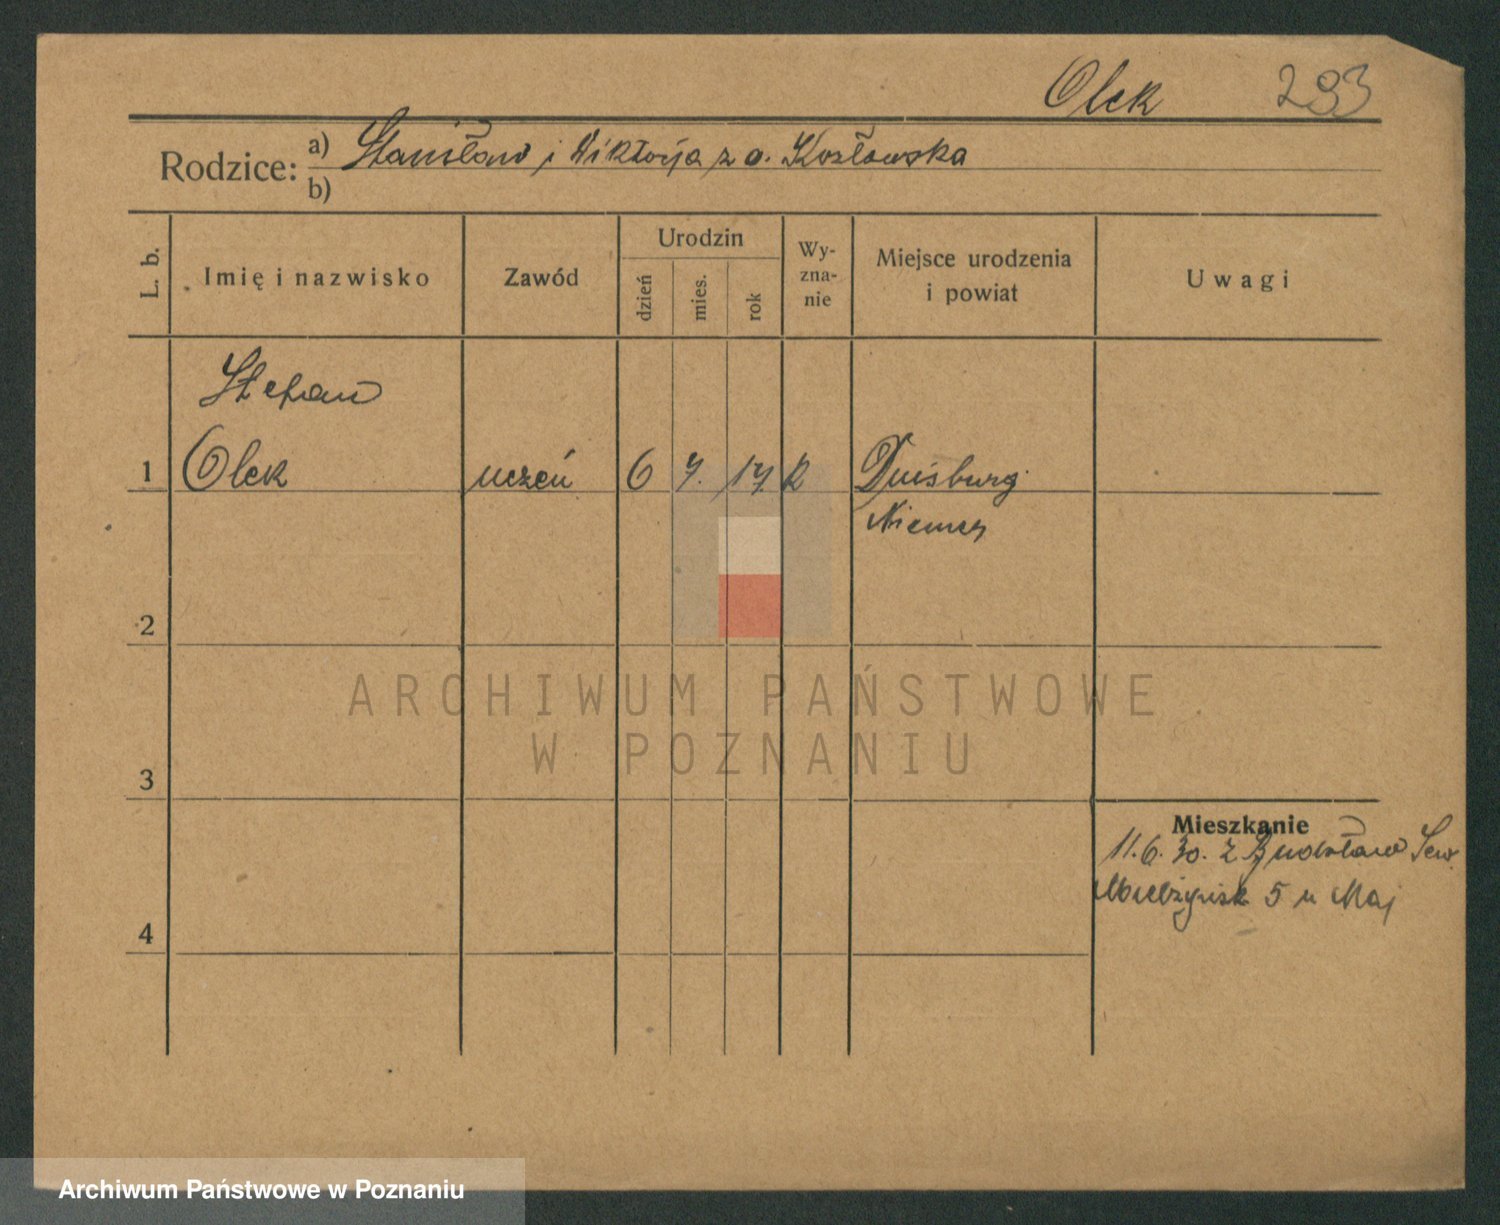 Olek 293
Rodzice: a) Stanisław i Wiktorja z d. Kozłowska
b)
L. b. Imię i nazwisko Zawód Urodzin dzień mies. rok Wy-zna-nie Miejsce urodzenia i powiat Uwagi
Stefan
1 Olek uczeń 6 7. 17. k Duisburg
Niemcy
2
ARCHIWUM PAŃSTWOWE
W POZNANIU
3
Mieszkanie
11. 6. 30. z Sew.
5 u Maj
4
Archiwum Państwowe w Poznaniu